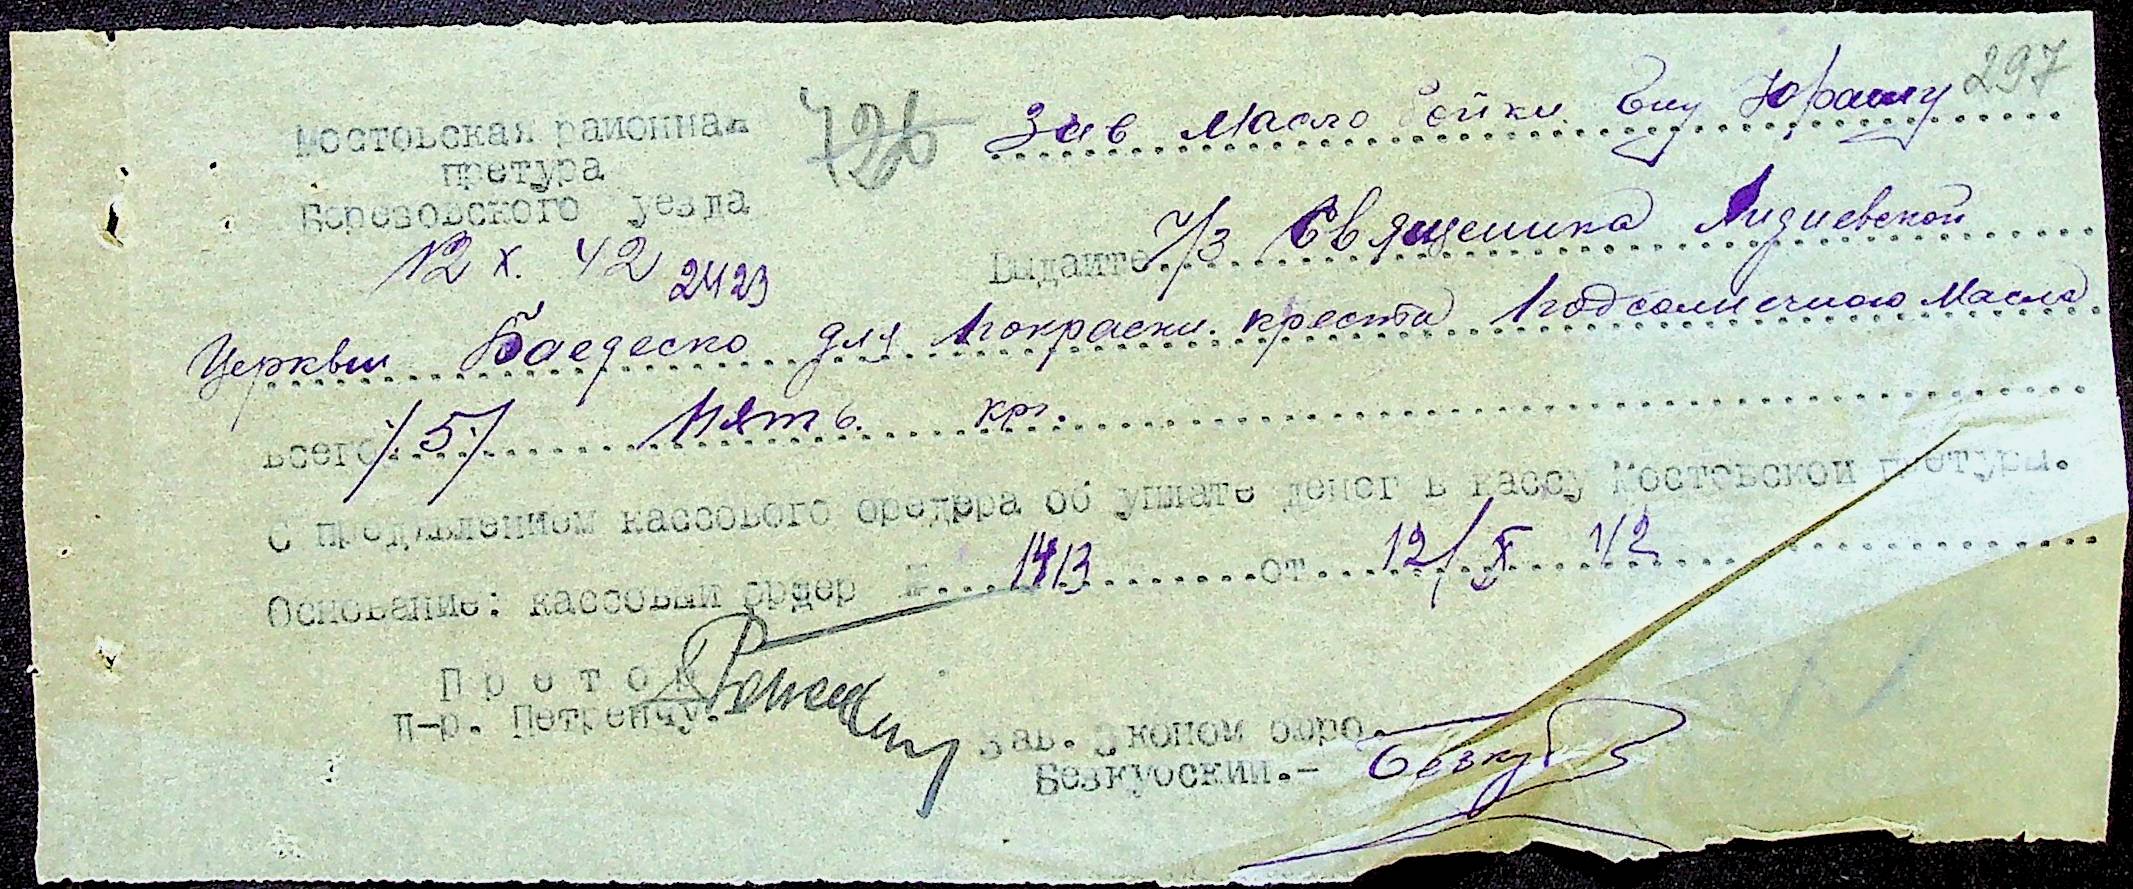 297
726
Мостовская районная
претура
Березовского уезда
12 X. 42 2423
Зав Масло бойки Ену Юрашу
Выдайте ч/з Священика Лидиевской
Церквы Баедеско для покраски креста Подсолнечного Масла
Всего /5/ Пять кгр.
С предъявлением кассового оредера об уплате денег в кассу Мостовской претуры.
Основание: кассовый ордер № 1413 от 12/X 42
Претор
п-р. Петренчу.
Зав. Эконом бюро.
Безкубский.-